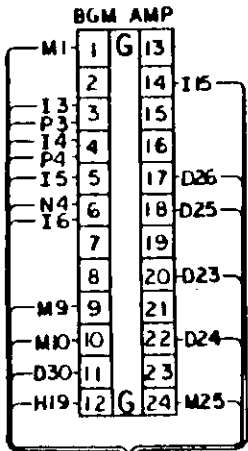 BGM AMP
M1 1 G 13
2 14 I15
I3
P3 3 15
I4
P4 4 16
I5 5 17 D26
N4 6 18 D25
I6
7 19
8 20 D23
M9 9 21
M10 10 22 D24
D30 11 23
H19 12 G 24 M25